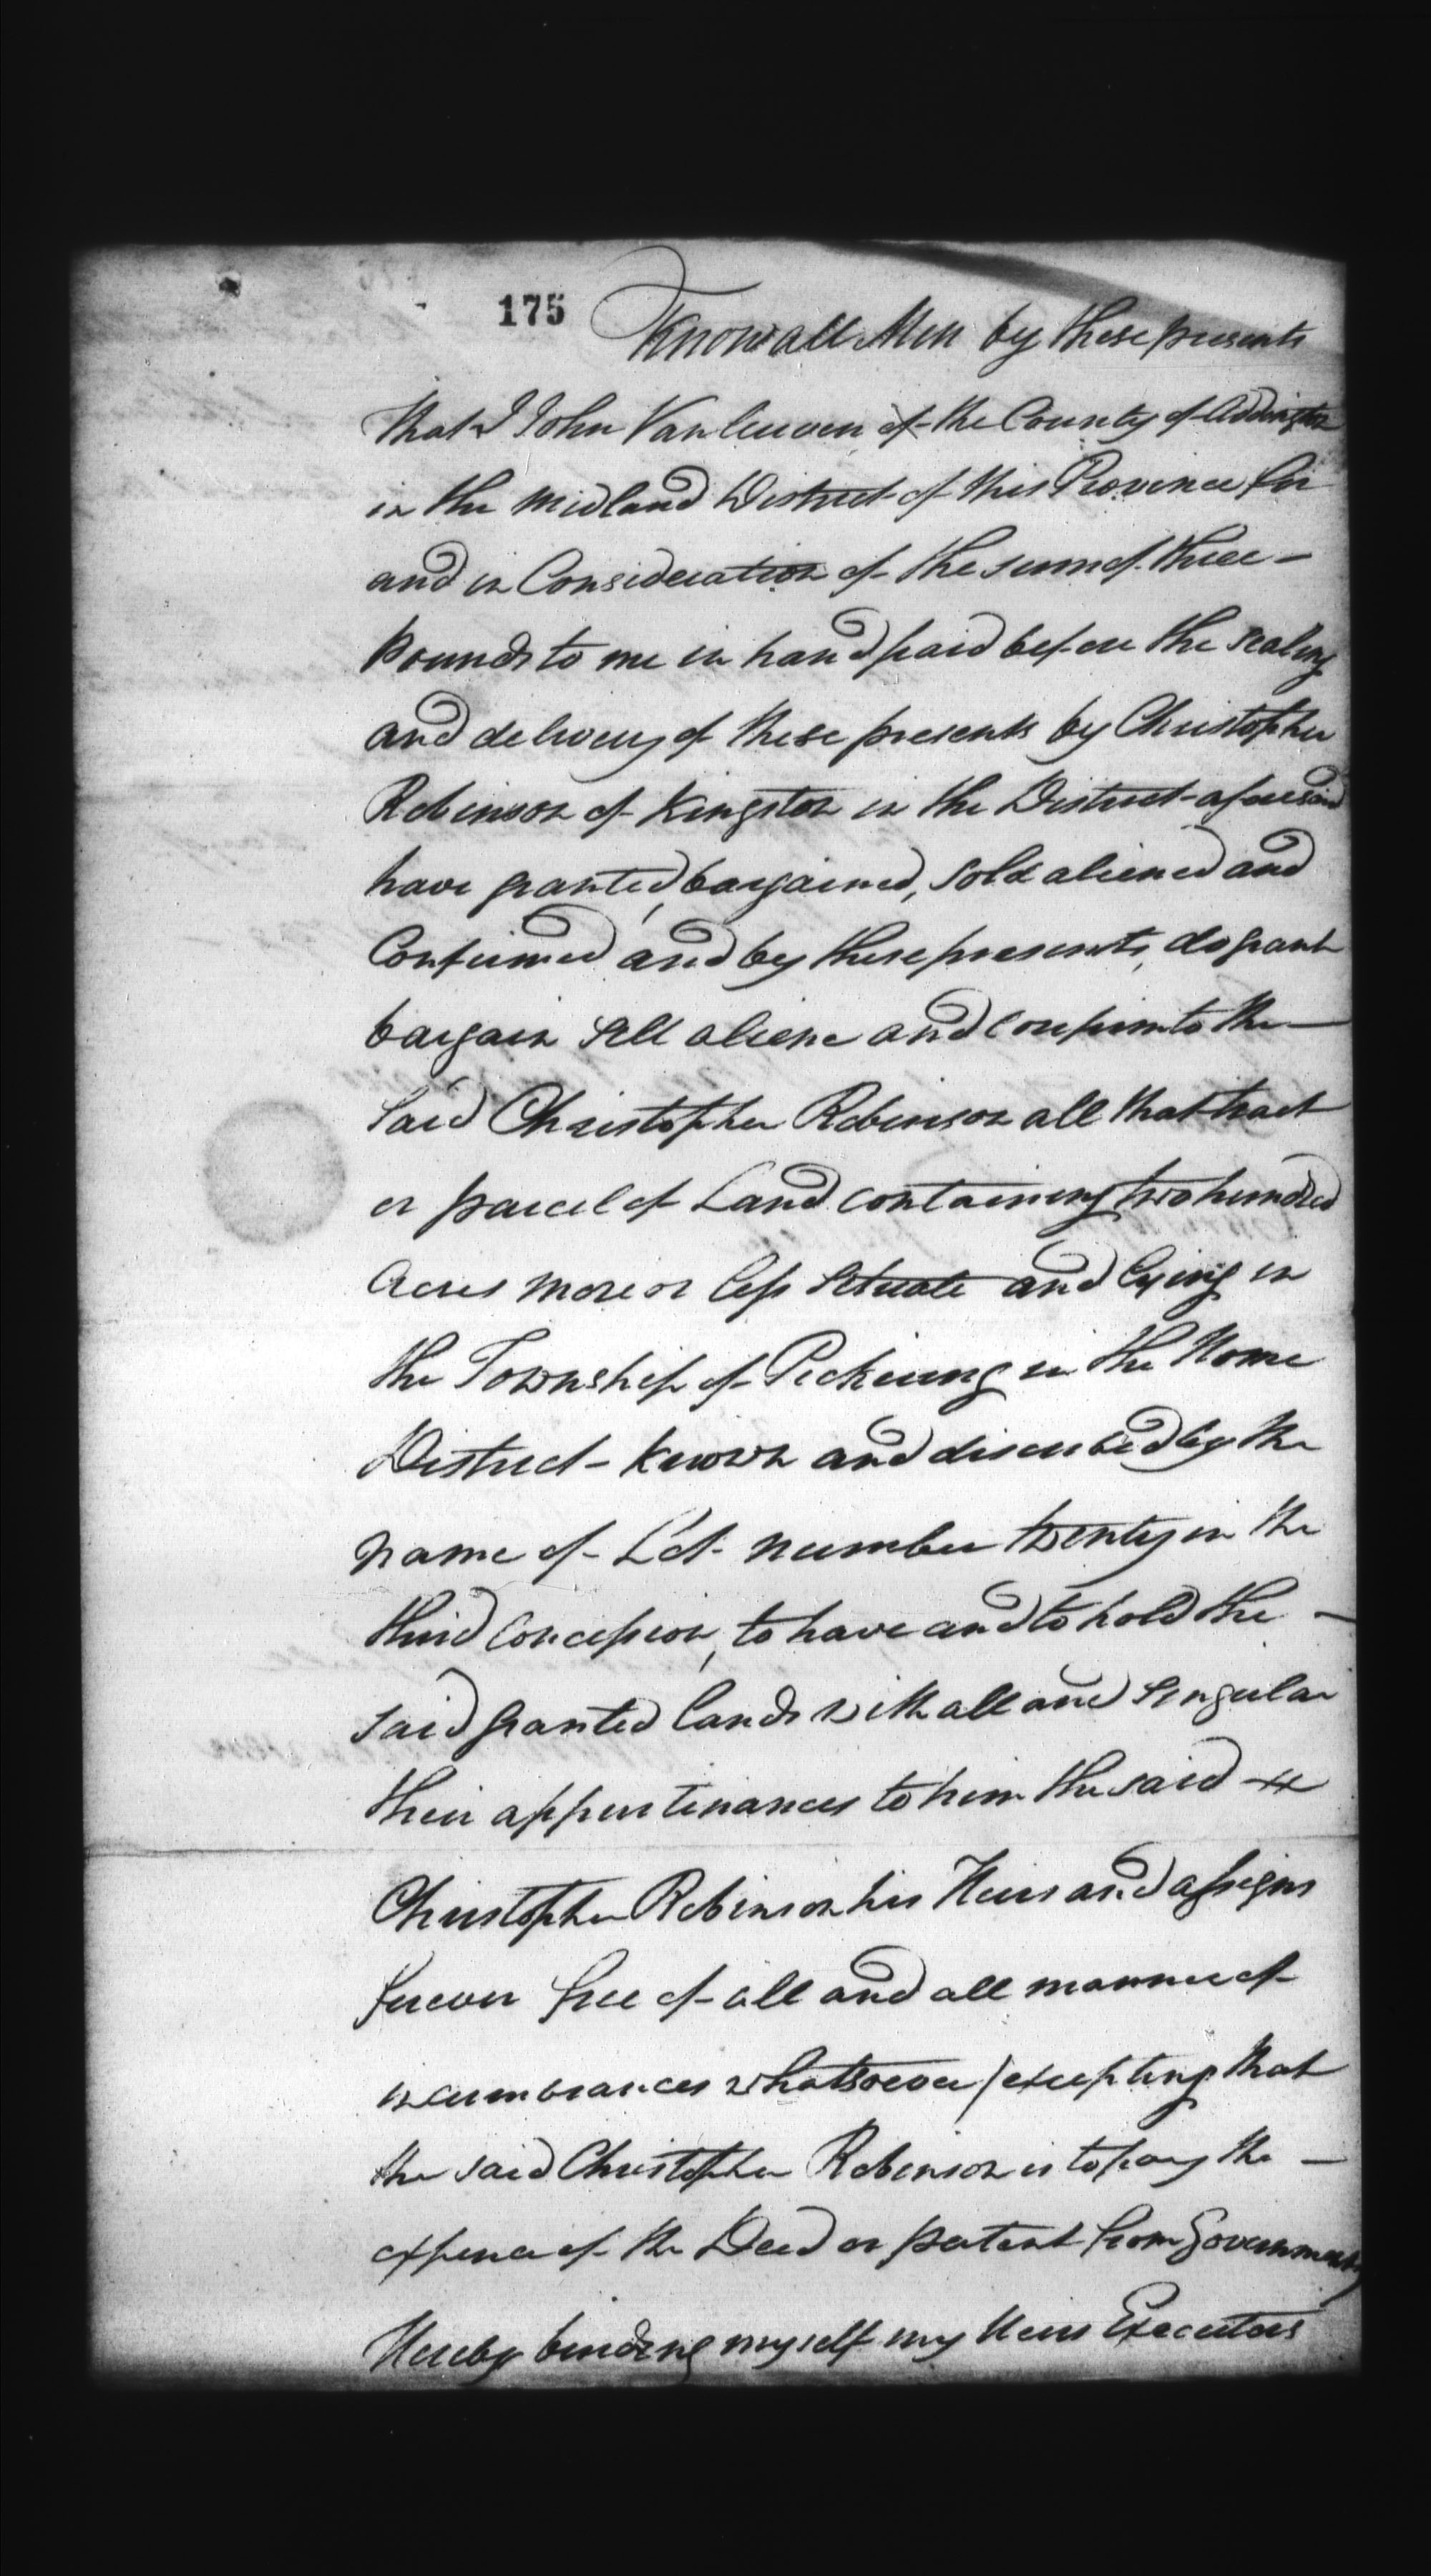 175
Know all Men by these presents
that I John Vanleuven of the County of Addington
in the Midland District of this Province for
and in Consideration of the sum of three —
pounds to me in hand paid before the sealing
and delivery of these presents by Christopher
Robinson of Kingston in the District aforesaid
have granted, bargained, sold aliened and
Confirmed and by these presents, do grant
bargain sell aliene and confirm to the —
said Christopher Robinson all that tract
or parcel of Land containing two hundred
Acres more or less situate and lying in
the Township of Pickering in the Home
District - known and discribed by the
name of Lot number twenty in the
third concession, to have and to hold the —
said granted lands with all and singular
their appurtinances to him the said
Christopher Robinson his Heirs and assigns
forever free of all and all manner of
incumbrances whatsoever / excepting that
the said Christopher Robinson is to pay the —
expence of the Deed or patent from Government /
Hereby binding myself my Heirs Executors